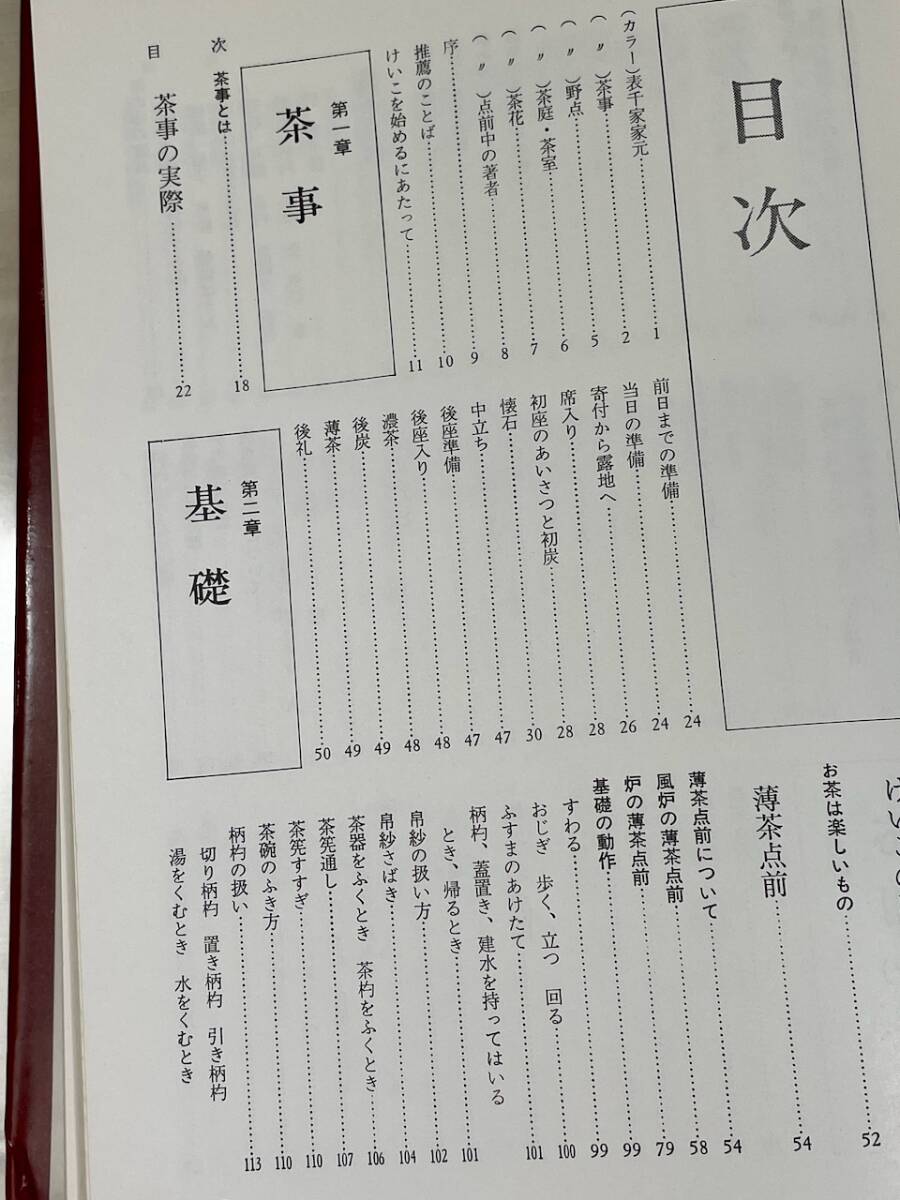 目次
(カラー)表千家家元……1
(〃)茶事……2
(〃)野点……5
(〃)茶庭・茶室……6
(〃)茶花……7
(〃)点前中の著者……8
序……9
推薦のことば……10
けいこを始めるにあたって……11
第一章
茶事
次
茶事とは……18
目
茶事の実際……22
前日までの準備……24
当日の準備……24
寄付から露地へ……26
席入り……28
初座のあいさつと初炭……28
懐石……30
中立ち……47
後座準備……47
後座入り……48
濃茶……48
後炭……49
薄茶……49
後礼……50
第二章
基礎
けいこの
お茶は楽しいもの……52
薄茶点前……54
薄茶点前について……54
風炉の薄茶点前……58
炉の薄茶点前……79
基礎の動作……99
すわる……99
おじぎ 歩く、立つ 回る……100
ふすまのあけたて……101
柄杓、蓋置き、建水を持ってはいる
とき、帰るとき……101
帛紗の扱い方……102
帛紗さばき……104
茶器をふくとき 茶杓をふくとき……106
茶筅通し……107
茶筅すすぎ……110
茶碗のふき方……110
柄杓の扱い……113
切り柄杓 置き柄杓 引き柄杓
湯をくむとき 水をくむとき